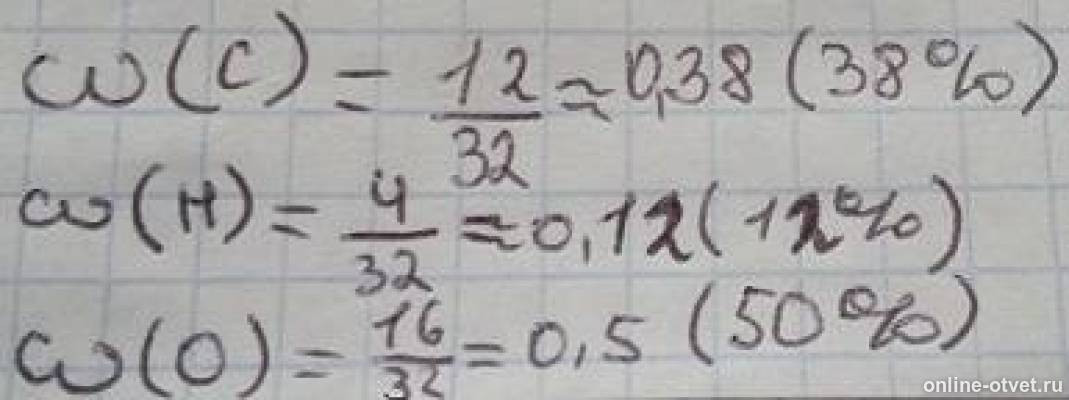 ω(C) = 12/32 ≈ 0,38 (38%)
ω(H) = 4/32 ≈ 0,12 (12%)
ω(O) = 16/32 = 0,5 (50%)
online-otvet.ru